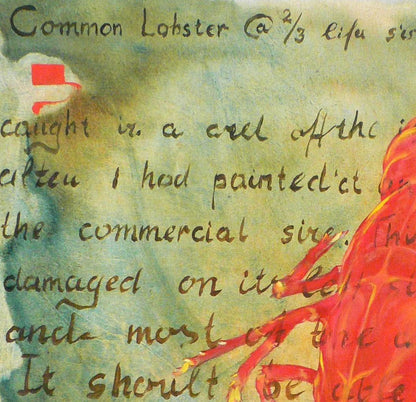 Common Lobster @ 2/3 life
caught in a creel off the
after I had painted it
the commercial size. Thu
damaged on its left
and most of the
It shoult be able